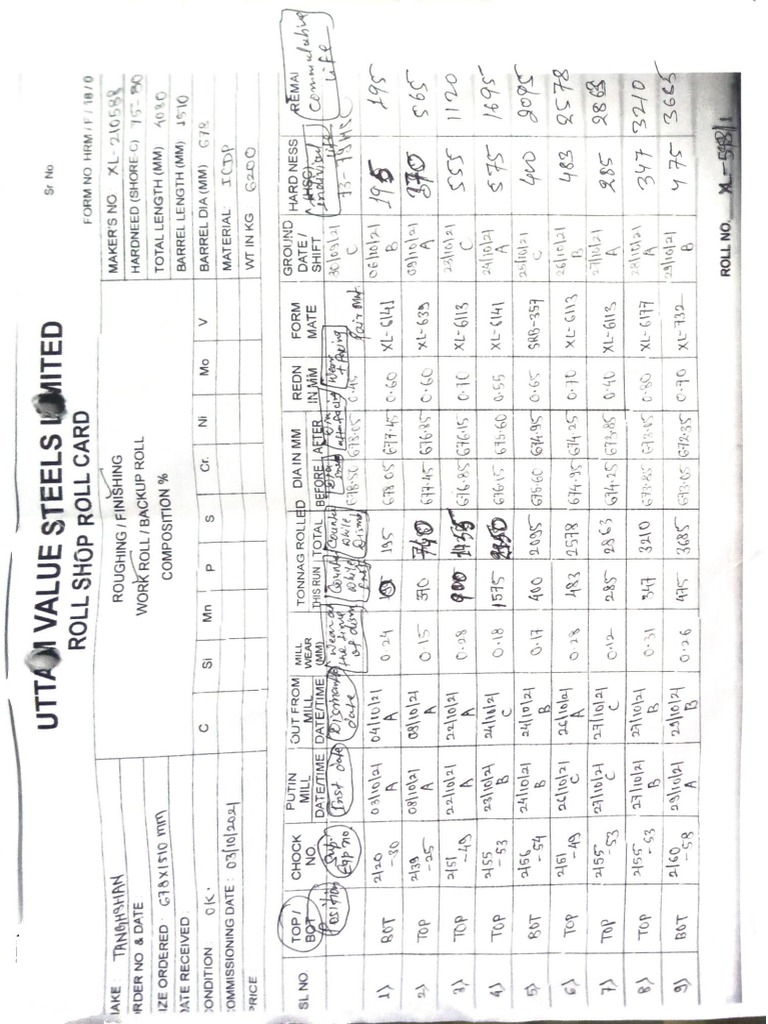 UTTAM VALUE STEELS LIMITED
ROLL SHOP ROLL CARD
Sr No
FORM NO HRM / F / 18 / 0
MAKE : TANGHSHAN
ORDER NO & DATE
SIZE ORDERED : 678X1510 mm
DATE RECEIVED :
CONDITION OK.
COMMISSIONING DATE : 03/10/2021
PRICE
ROUGHING / FINISHING
WORK ROLL / BACKUP ROLL
COMPOSITION %
C Si Mn P S Cr. Ni Mo V
MAKER'S NO XL-210588
HARDNEED (SHORE C) 75-80
TOTAL LENGTH (MM) 4080
BARREL LENGTH (MM) 1510
BARREL DIA (MM) 678
MATERIAL: ICDP
WT IN KG : 6200
SL NO TOP / BOT CHOCK NO. PUTIN MILL DATE/TIME OUT FROM MILL DATE/TIME MILL WEAR (MM) TONNAG ROLLED THIS RUN TOTAL DIA IN MM BEFORE AFTER REDN IN MM FORM MATE GROUND DATE / SHIFT HARDNESS (HSC) REMAI
Position Sup. Eqp no. Inst date Dismantle date Wear at the time of dism Counter while Inst Counter while Dism Dia Inst Dia after facing Wear + facing Pair Mat. Individual life Commulating life
678.50 678.05 0.45 30/09/21 C 73-79 HSC
1) BOT 2/20 -30 03/10/21 A 04/10/21 A 0.24 195 678.05 677.45 0.60 XL-6141 06/10/21 B 195 195
2) TOP 2/39 -25 08/10/21 A 08/10/21 A 0.15 370 740 677.45 676.85 0.60 XL-639 09/10/21 A 370 565
3) TOP 2/51 -49 22/10/21 A 22/10/21 A 0.28 900 676.85 676.15 0.70 XL-6113 23/10/21 C 555 1120
4) TOP 2/55 -53 23/10/21 B 24/10/21 C 0.18 1575 676.15 675.60 0.55 XL-6141 24/10/21 A 575 1695
5) BOT 2/56 -54 24/10/21 B 24/10/21 B 0.17 400 2095 675.60 674.95 0.65 SRB-357 25/10/21 C 400 2095
6) TOP 2/51 -49 26/10/21 C 26/10/21 A 0.28 483 2578 674.95 674.25 0.70 XL-6113 26/10/21 B 483 2578
7) TOP 2/55 -53 27/10/21 C 27/10/21 A 0.12 285 2863 674.25 673.85 0.40 XL-6113 27/10/21 A 285 2863
8) TOP 2/55 -53 27/10/21 B 27/10/21 B 0.31 347 3210 673.85 673.05 0.80 XL-6177 28/10/21 A 347 3210
9) BOT 2/60 -58 29/10/21 A 29/10/21 B 0.26 475 3685 673.05 672.35 0.70 XL-732 29/10/21 B 475 3685
ROLL NO. XL-598/1